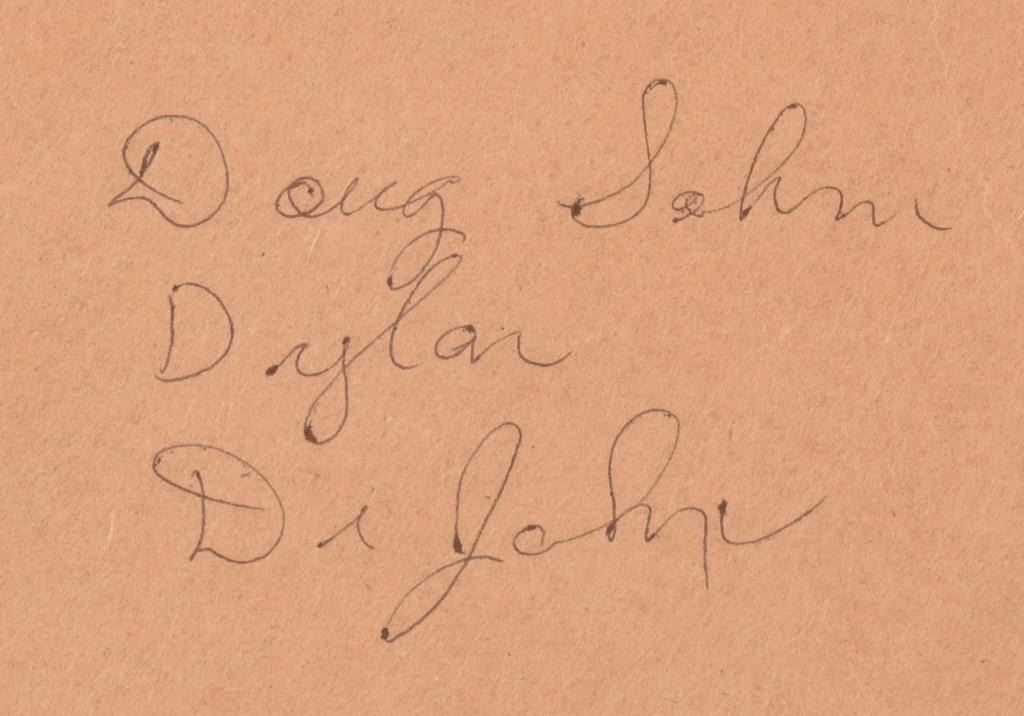 Doug Sahm
Dylan
Dr John